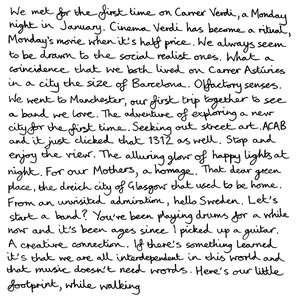 We met for the first time on Carrer Verdi, a Monday
night in January. Cinema Verdi has become a ritual,
Monday's movie when it's half price. We always seem
to be drawn to the social realist ones. What a
coincidence that we both lived on Carrer Astúries
in a city the size of Barcelona. Olfactory senses.
We went to Manchester, our first trip together to see
a band we love. The adventure of exploring a new
city for the first time. Seeking out street art. ACAB
and it just clicked that 1312 as well. Stop and
enjoy the view. The alluring glow of happy lights at
night. For our Mothers, a homage. That dear green
place, the dreich city of Glasgow that used to be home.
From an unrisited admiration, hello Sweden. Let's
start a band? You've been playing drums for a while
now and it's been ages since I picked up a guitar.
A creative connection. If there's something learned
it's that we are all interdependent in this world and
that music doesn't need words. Here's our little
footprint, while walking